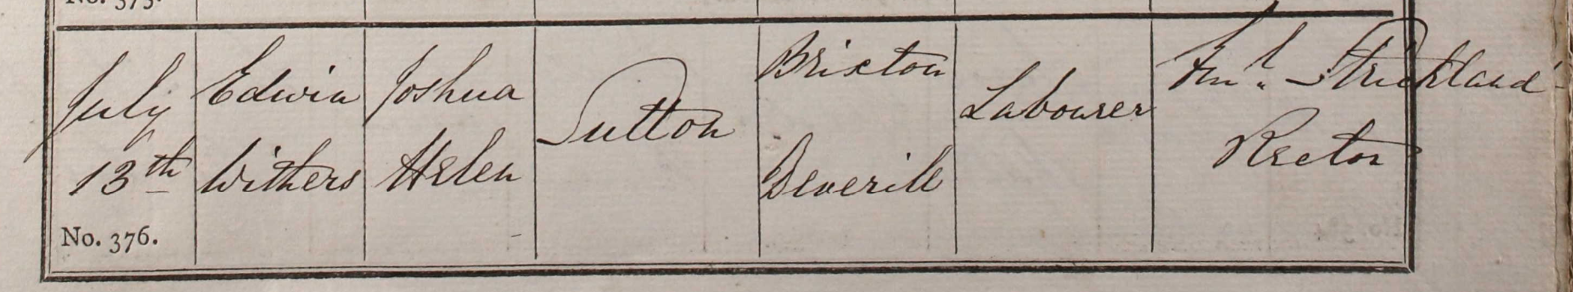 No. 375.
July
13th
No. 376.
Edwin
Withers
Joshua
Helen
Sutton
Brixton
Deverill
Labourer
Strickland
Rector